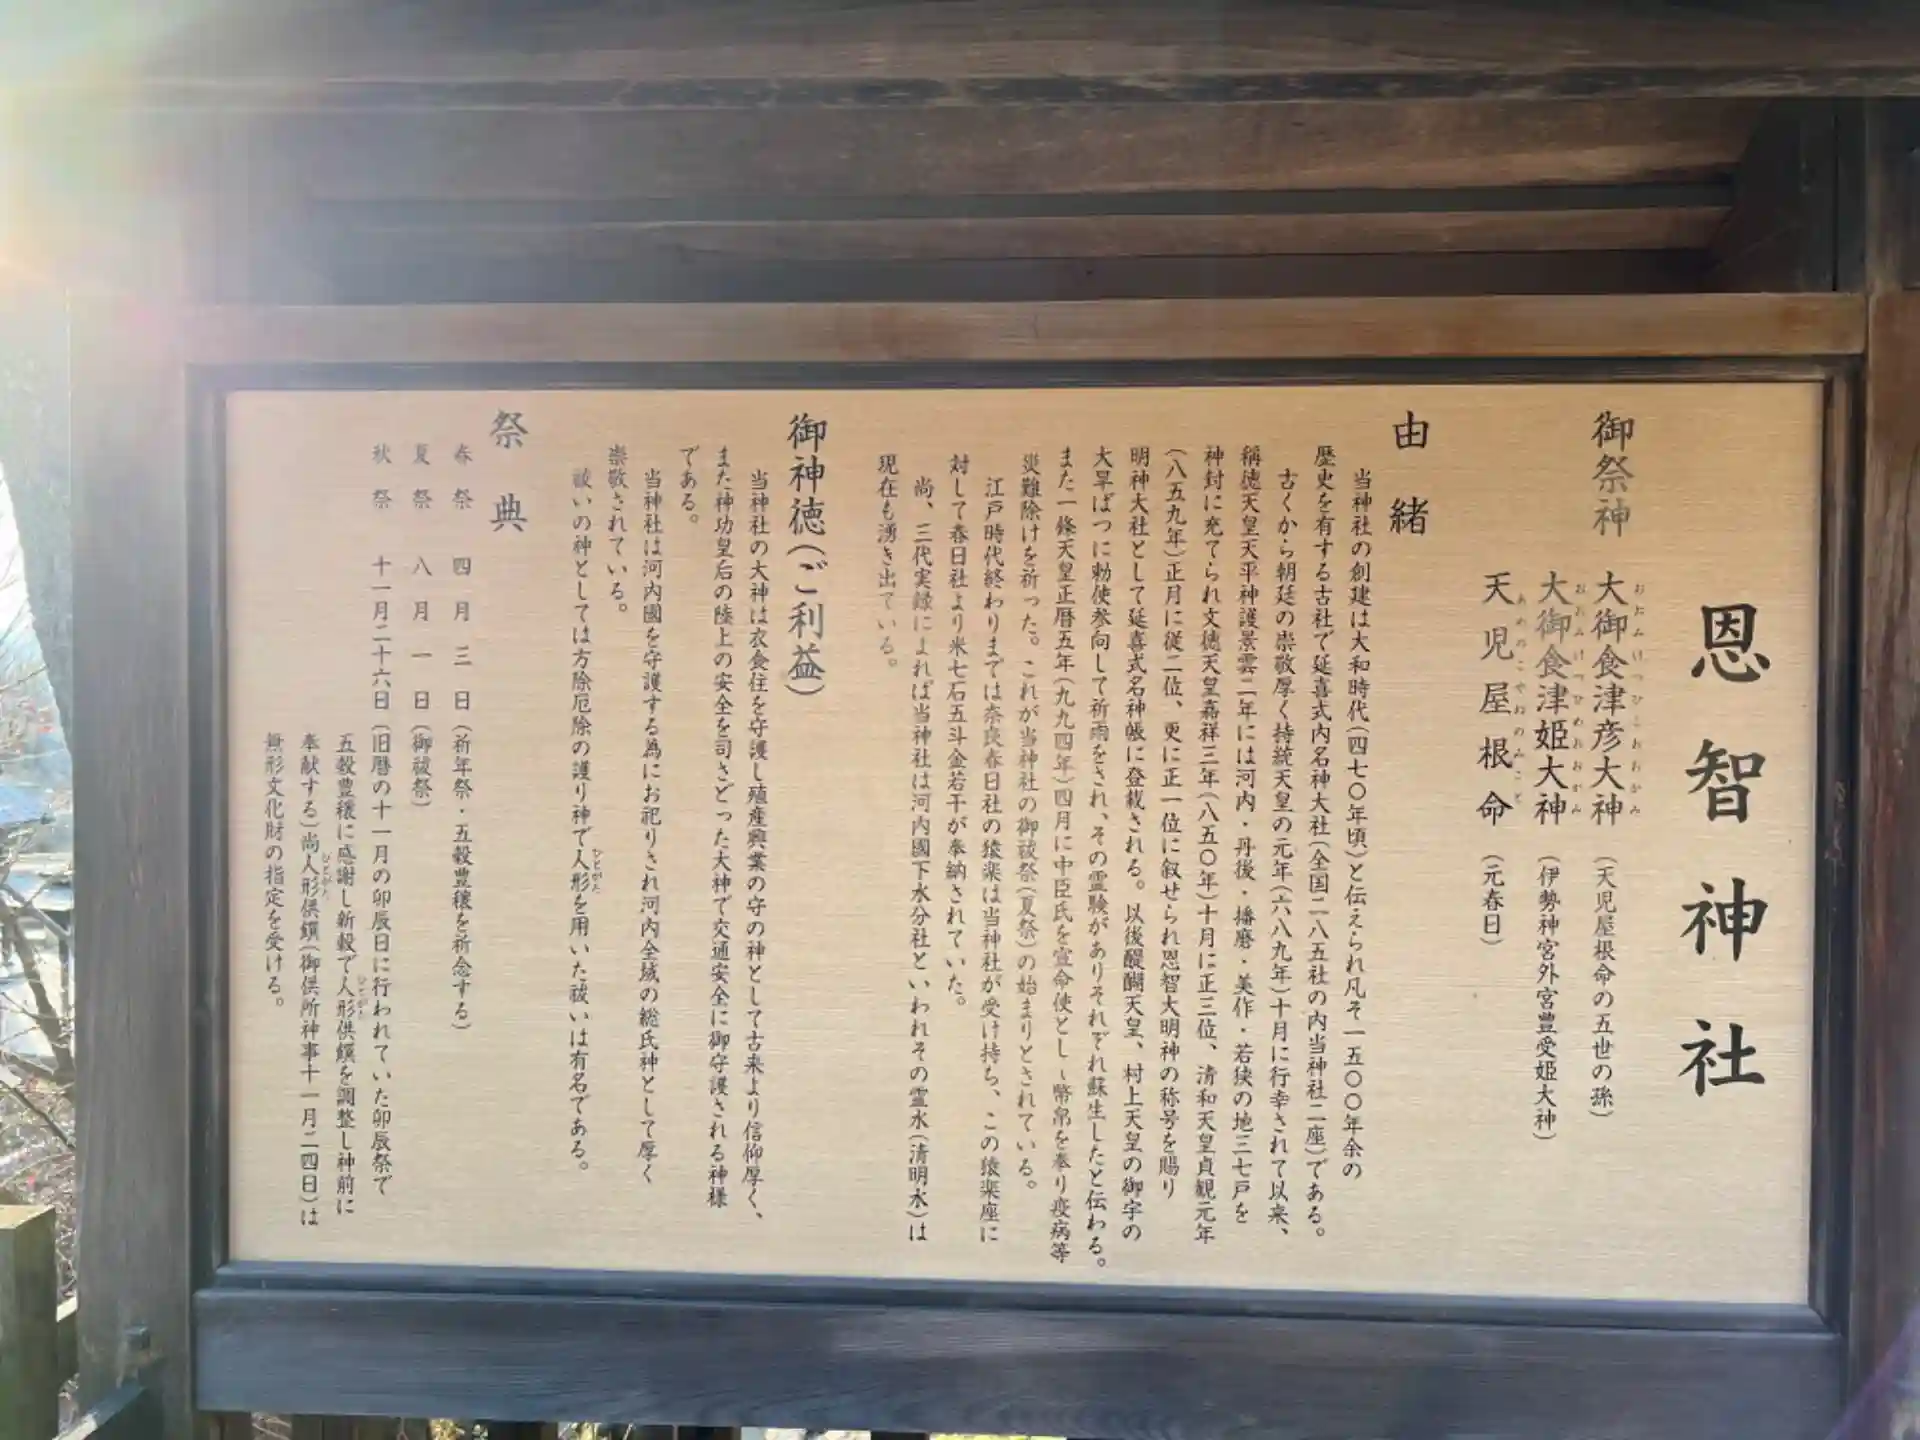 恩智神社
御祭神
大御食津彦大神(天児屋根命の五世の孫)
おおみけつひこおおかみ
大御食津姫大神(伊勢神宮外宮豊受姫大神)
おおみけつひめおおかみ
天児屋根命(元春日)
あめのこやねのみこと
由緒
当神社の創建は大和時代(四七〇年頃)と伝えられ凡そ一五〇〇年余の
歴史を有する古社で延喜式内名神大社(全国二八五社の内当神社二座)である。
古くから朝廷の崇敬厚く持統天皇の元年(六八九年)十月に行幸されて以来、
稱徳天皇天平神護景雲二年には河内・丹後・播磨・美作・若狭の地三七戸を
神封に充てられ文徳天皇嘉祥三年(八五〇年)十月に正三位、清和天皇貞観元年
(八五九年)正月に従二位、更に正一位に叙せられ恩智大明神の称号を賜り
明神大社として延喜式名神帳に登載される。以後醍醐天皇、村上天皇の御宇の
大旱ばつに勅使参向して祈雨をされ、その霊験がありそれぞれ蘇生したと伝わる。
また一條天皇正暦五年(九九四年)四月に中臣氏を宣命使とし幣帛を奉り疫病等
災難除けを祈った。これが当神社の御祓祭(夏祭)の始まりとされている。
江戸時代終わりまでは奈良春日社の猿楽は当神社が受け持ち、この猿楽座に
対して春日社より米七石五斗金若干が奉納されていた。
尚、三代実録によれば当神社は河内國下水分社といわれその霊水(清明水)は
現在も湧き出ている。
御神徳(ご利益)
当神社の大神は衣食住を守護し殖産興業の守の神として古来より信仰厚く、
また神功皇后の陸上の安全を司さどった大神で交通安全に御守護される神様
である。
当神社は河内國を守護する為にお祀りされ河内全域の総氏神として厚く
崇敬されている。
祓いの神としては方除厄除の護り神で人形を用いた祓いは有名である。
ひとがた
祭典
春祭 四月三日(祈年祭・五穀豊穣を祈念する)
夏祭 八月一日(御祓祭)
秋祭 十一月二十六日(旧暦の十一月の卯辰日に行われていた卯辰祭で
五穀豊穣に感謝し新穀で人形供饌を調整し神前に
ひとがた
奉献する)尚人形供饌(御供所神事十一月二四日)は
ひとがた
無形文化財の指定を受ける。